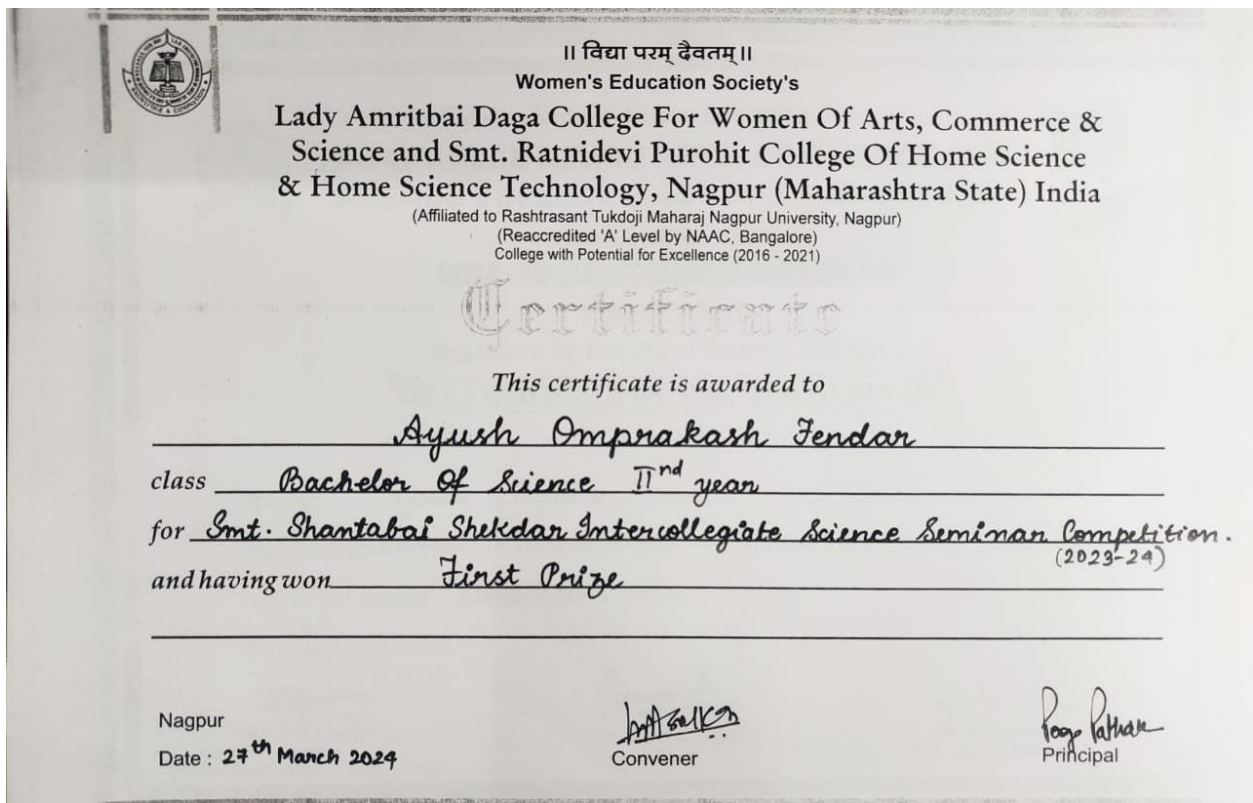 ॥ विद्या परम् दैवतम् ॥
Women's Education Society's
Lady Amritbai Daga College For Women Of Arts, Commerce &
Science and Smt. Ratnidevi Purohit College Of Home Science
& Home Science Technology, Nagpur (Maharashtra State) India
(Affiliated to Rashtrasant Tukdoji Maharaj Nagpur University, Nagpur)
(Reaccredited 'A' Level by NAAC, Bangalore)
College with Potential for Excellence (2016 - 2021)
Certificate
This certificate is awarded to
Ayush Omprakash Fendar
class Bachelor Of Science IInd year
for Smt. Shantabai Shekdar Intercollegiate Science Seminar Competition.
(2023-24)
and having won First Prize
Nagpur
Date : 27th March 2024
Convener
Pooja Pathak
Principal